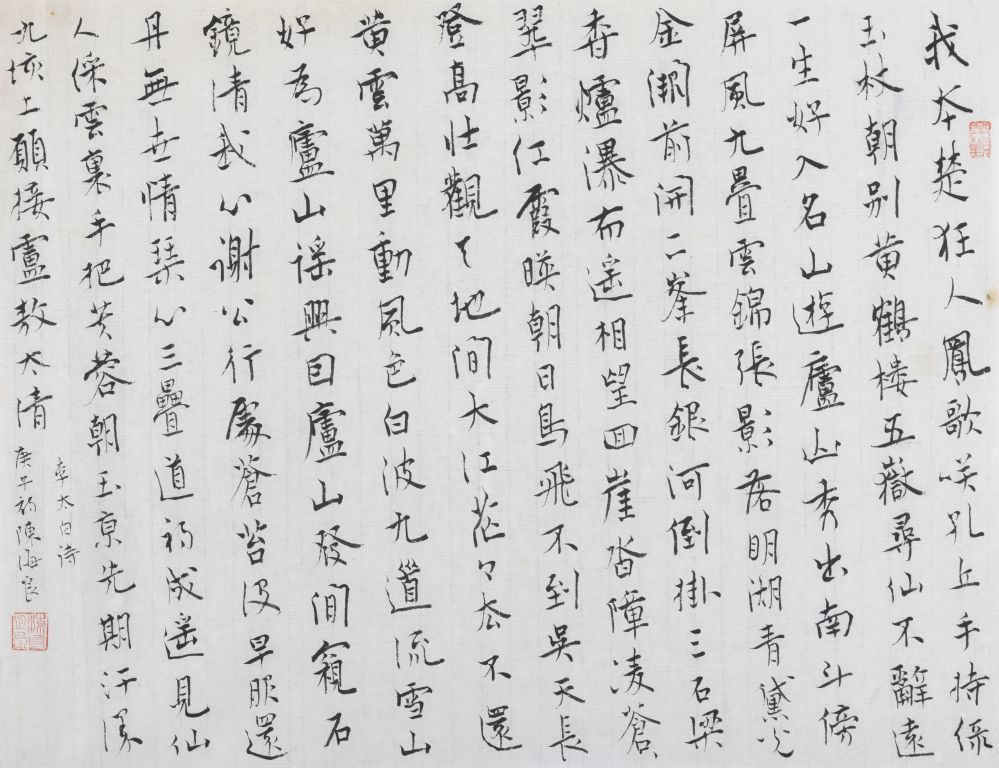 我本楚狂人鳳歌咲孔丘手持綠
玉杖朝别黄鶴楼五嶽尋仙不辭遠
一生好入名山遊廬山秀出南斗傍
屏風九疊雲錦張影落明湖青黛光
金闕前開二峯長銀河倒掛三石梁
香爐瀑布遥相望回崖沓嶂凌蒼
翠影红霞映朝日鳥飛不到吴天長
登高壮觀天地间大江茫々去不還
黄雲萬里動風色白波九道流雪山
好為廬山謡興因廬山發闲窺石
鏡清我心謝公行處蒼苔没早服還
丹無世情琴心三疊道初成遥見仙
人綵雲裏手把芙蓉朝玉京先期汗漫
九垓上願接盧敖太清
李太白诗
庚子初陳海良